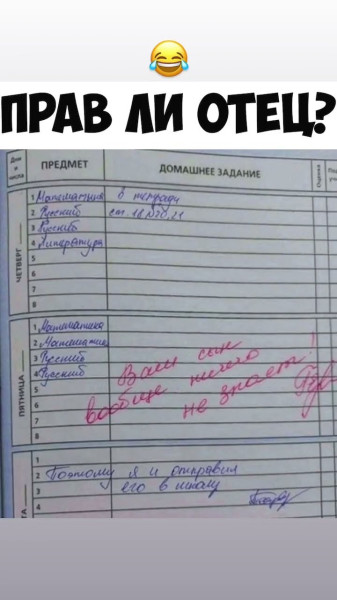 ПРАВ ЛИ ОТЕЦ?
Дни и числа
ПРЕДМЕТ
ДОМАШНЕЕ ЗАДАНИЕ
Оценка
ЧЕТВЕРГ
1 Математика в тетради
2 Русский ст. 18 №20, 21
3 Русский
4 Литература
5
6
7
8
ПЯТНИЦА
1 Математика
2 Математика
3 Русский
4 Русский
5
6
7
8
Ваш сын
вообще ничего
не знает!
1
2 Поэтому я и отправил
3 его в школу
4